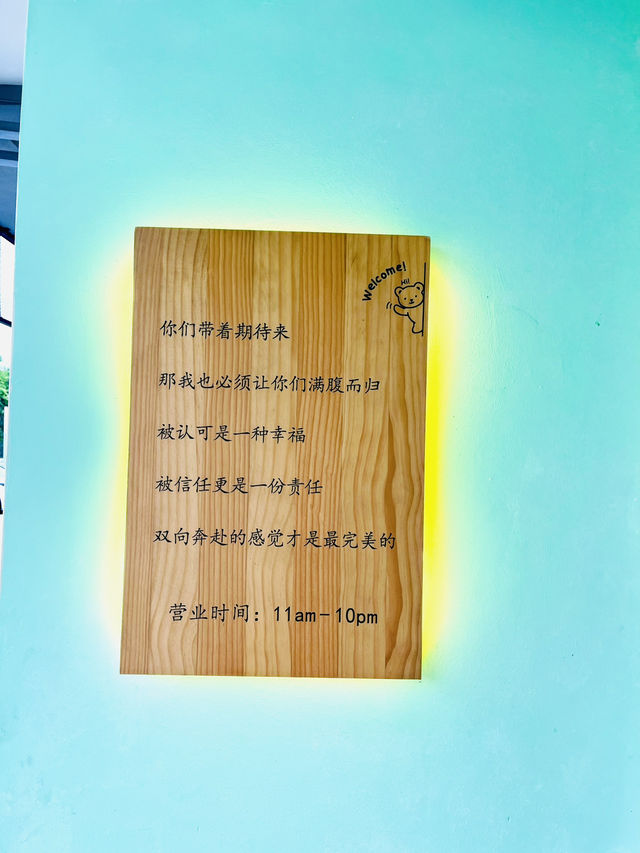 Welcome!
Hi!
你们带着期待来
那我也必须让你们满腹而归
被认可是一种幸福
被信任更是一份责任
双向奔赴的感觉才是最完美的
营业时间：11am-10pm